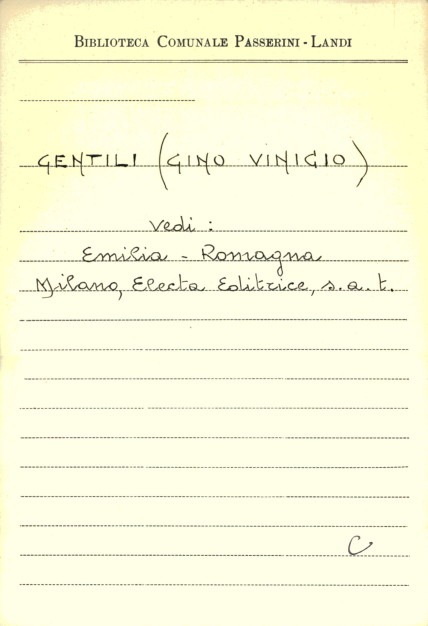 BIBLIOTECA COMUNALE PASSERINI - LANDI
GENTILI (GINO VINICIO)
Vedi :
Emilia - Romagna
Milano, Electa Editrice, s. a. t.
C